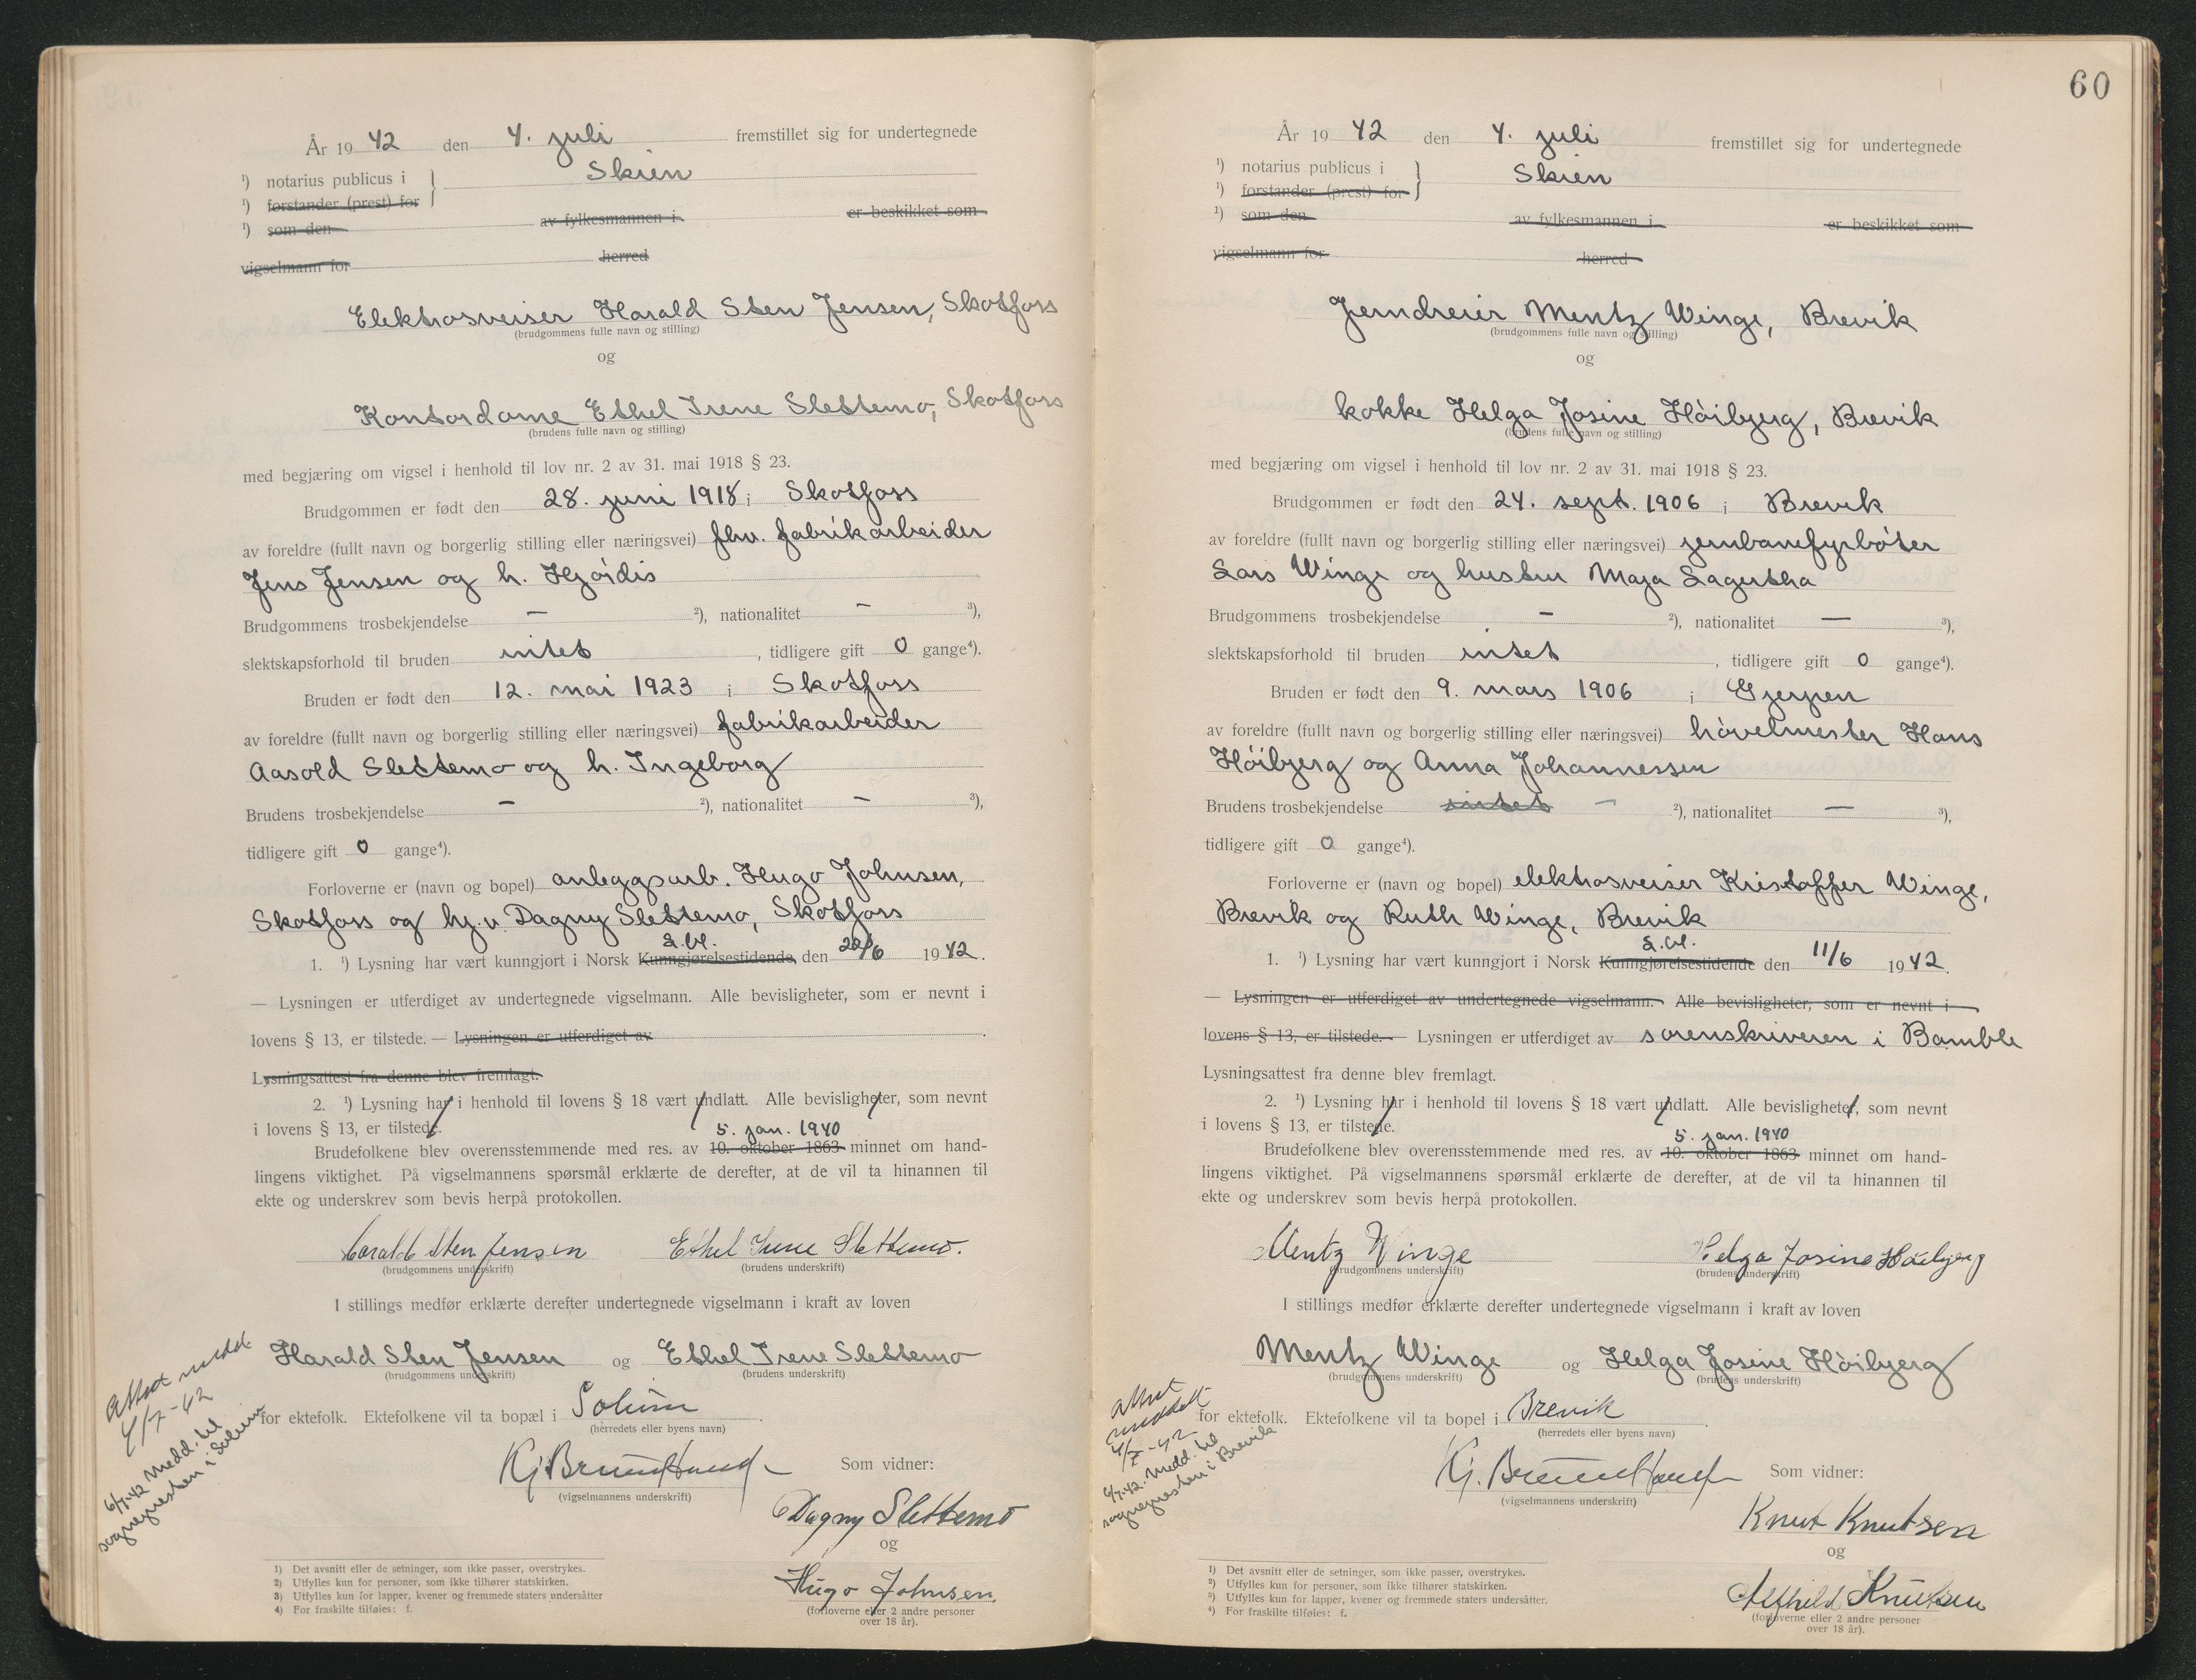 År 19 42 den 4. juli fremstillet sig for undertegnede
¹) notarius publicus i } Skien
¹) forstander (prest) for
¹) som den av fylkesmannen i er beskikket som
vigselmann for herred
Elektrosveiser Harald Sten Jensen, Skotfoss
(brudgommens fulle navn og stilling)
og
Kontordame Ethel Irene Slettemo, Skotfoss
(brudens fulle navn og stilling)
med begjæring om vigsel i henhold til lov nr. 2 av 31. mai 1918 § 23.
Brudgommen er født den 28. juni 1918 i Skotfoss
av foreldre (fullt navn og borgerlig stilling eller næringsvei) fhv. fabrikarbeider
Jens Jensen og h. Hjørdis
Brudgommens trosbekjendelse – ²), nationalitet – ³),
slektskapsforhold til bruden intet, tidligere gift 0 gange⁴).
Bruden er født den 12. mai 1923 i Skotfoss
av foreldre (fullt navn og borgerlig stilling eller næringsvei) fabrikarbeider
Aasold Slettemo og h. Ingeborg
Brudens trosbekjendelse – ²), nationalitet – ³),
tidligere gift 0 gange⁴).
Forloverne er (navn og bopel) anleggsarb. Hugo Johnsen,
Skotfoss og hj.v. Dagny Slettemo, Skotfoss
L.bl.
1. ¹) Lysning har vært kunngjort i Norsk Kunngjørelsestidende, den 22/6 1942.
— Lysningen er utferdiget av undertegnede vigselmann. Alle bevisligheter, som er nevnt i
lovens § 13, er tilstede. — Lysningen er utferdiget av
Lysningsattest fra denne blev fremlagt.
2. ¹) Lysning har i henhold til lovens § 18 vært undlatt. Alle bevisligheter, som nevnt
i lovens § 13, er tilstede.
5. jan. 1940
Brudefolkene blev overensstemmende med res. av 10. oktober 1863 minnet om hand-
lingens viktighet. På vigselmannens spørsmål erklærte de derefter, at de vil ta hinannen til
ekte og underskrev som bevis herpå protokollen.
Harald Sten Jensen Ethel Irene Slettemo.
(brudgommens underskrift) (brudens underskrift)
I stillings medfør erklærte derefter undertegnede vigselmann i kraft av loven
Harald Sten Jensen og Ethel Irene Slettemo
(brudgommens underskrift) (brudens underskrift)
for ektefolk. Ektefolkene vil ta bopæl i Solum.
(herredets eller byens navn)
Attest medd.
4/7-42
6/7-42 Medd. til
sognepresten i Solum
Som vidner:
(vigselmannens underskrift)
Dagny Slettemo
og
Hugo Johnsen.
(forloverne eller 2 andre personer
over 18 år).
1) Det avsnitt eller de setninger, som ikke passer, overstrykes.
2) Utfylles kun for personer, som ikke tilhører statskirken.
3) Utfylles kun for lapper, kvener og fremmede staters undersåtter
4) For fraskilte tilføies: f.
60
År 19 42 den 4. juli fremstillet sig for undertegnede
¹) notarius publicus i } Skien
¹) forstander (prest) for
¹) som den av fylkesmannen i er beskikket som
vigselmann for herred
Jerndreier Mentz Winge, Brevik
(brudgommens fulle navn og stilling)
og
kokke Helga Josine Høibjerg, Brevik
(brudens fulle navn og stilling)
med begjæring om vigsel i henhold til lov nr. 2 av 31. mai 1918 § 23.
Brudgommen er født den 24. sept. 1906 i Brevik
av foreldre (fullt navn og borgerlig stilling eller næringsvei) jernbanefyrbøter
Lars Winge og hustru Maja Lagertha
Brudgommens trosbekjendelse – ²), nationalitet – ³),
slektskapsforhold til bruden intet, tidligere gift 0 gange⁴).
Bruden er født den 9. mars 1906 i Gjerpen
av foreldre (fullt navn og borgerlig stilling eller næringsvei) høvelmester Hans
Høibjerg og Anna Johannessen
Brudens trosbekjendelse intet – ²), nationalitet – ³),
tidligere gift 0 gange⁴).
Forloverne er (navn og bopel) elektrosveiser Kristoffer Winge,
Brevik og Ruth Winge, Brevik
L.bl.
1. ¹) Lysning har vært kunngjort i Norsk Kunngjørelsestidende den 11/6 1942.
— Lysningen er utferdiget av undertegnede vigselmann. Alle bevisligheter, som er nevnt i
lovens § 13, er tilstede. — Lysningen er utferdiget av sorenskriveren i Bamble
Lysningsattest fra denne blev fremlagt.
2. ¹) Lysning har i henhold til lovens § 18 vært undlatt. Alle bevisligheter, som nevnt
i lovens § 13, er tilstede.
5. jan. 1940
Brudefolkene blev overensstemmende med res. av 10. oktober 1863 minnet om hand-
lingens viktighet. På vigselmannens spørsmål erklærte de derefter, at de vil ta hinannen til
ekte og underskrev som bevis herpå protokollen.
Mentz Winge Helga Josine Høibjerg
(brudgommens underskrift) (brudens underskrift)
I stillings medfør erklærte derefter undertegnede vigselmann i kraft av loven
Mentz Winge og Helga Josine Høibjerg
(brudgommens underskrift) (brudens underskrift)
for ektefolk. Ektefolkene vil ta bopel i Brevik.
(herredets eller byens navn)
Attest
meddelt
4/7-42
6/7-42. Medd. til
sognepresten i Brevik
Som vidner:
(vigselmannens underskrift)
Knut Knutsen
og
Alfhild Knutsen
(forloverne eller 2 andre personer
over 18 år).
¹) Det avsnitt eller de setninger, som ikke passer, overstrykes.
²) Utfylles kun for personer, som ikke tilhører statskirken.
³) Utfylles kun for lapper, kvener og fremmede staters undersåtter.
⁴) For fraskilte tilføies: f.